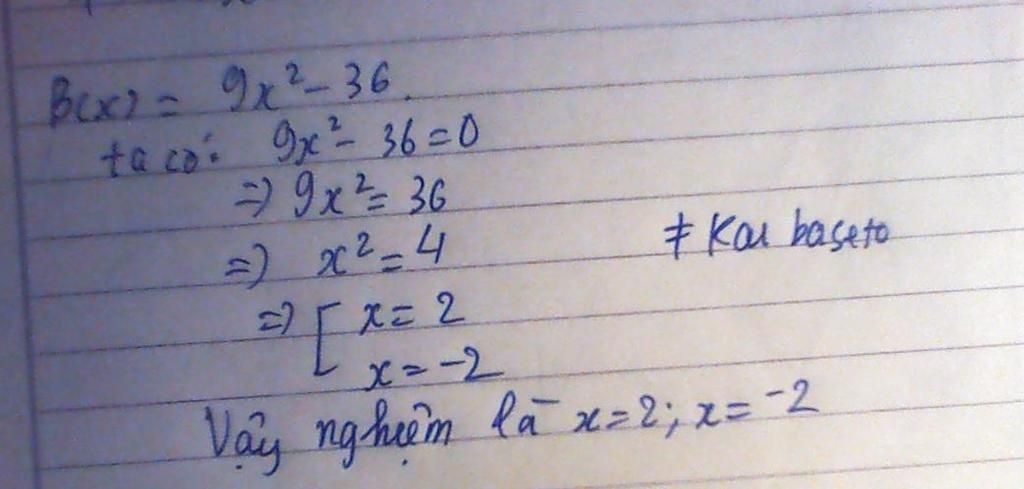 B(x) = 9x² - 36.
ta có: 9x² - 36 = 0
=) 9x² = 36
=) x² = 4
≠ Kau baseto
=) [ x = 2
x = -2
Vậy nghiệm là x = 2; x = -2